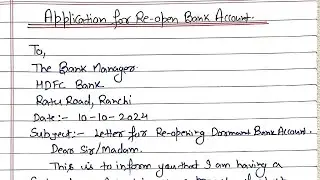 Application for Re-open Bank Account.
To,
The Bank Manager
HDFC Bank.
Ratu Road, Ranchi
Date:- 10-10-2024
Subject:- Letter for Re-opening Dormant Bank Account.
Dear Sir/Madam.
This is to inform you that I am having a